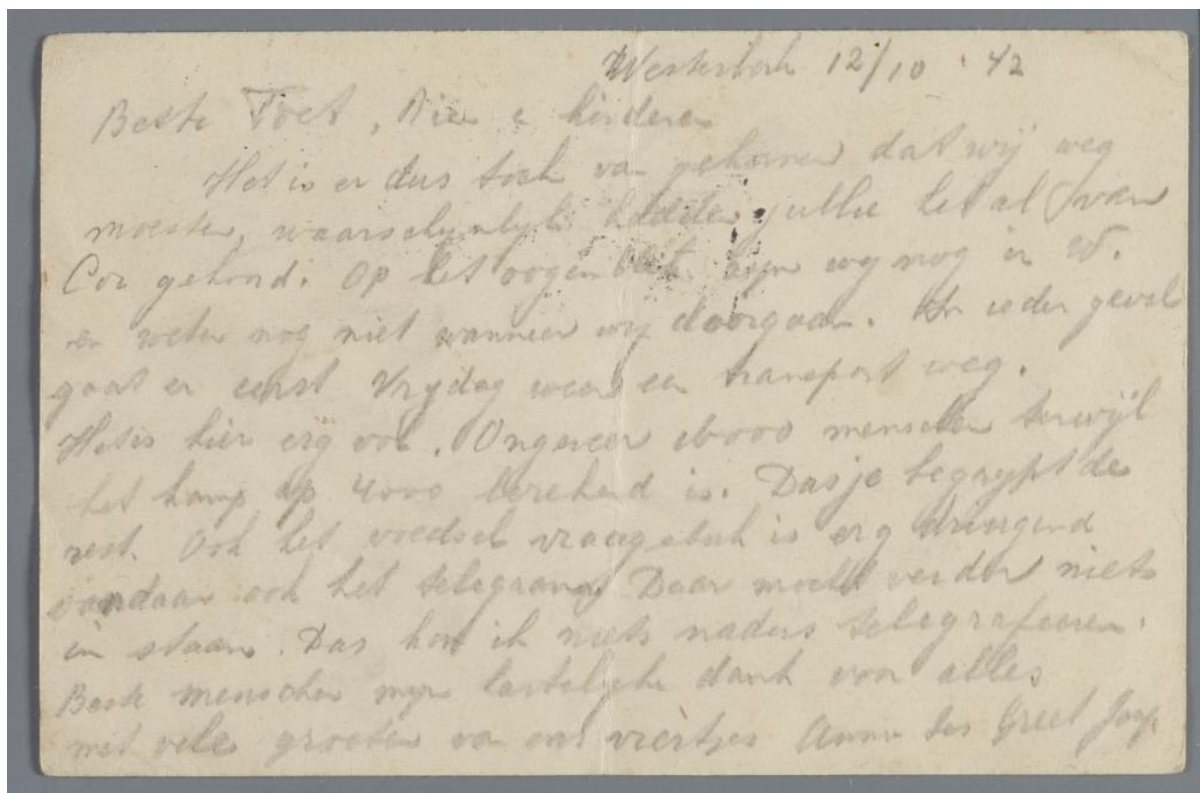 Westerbork 12/10 '42
Beste Toet, Rie & kinderen
Het is er dus toch van gekomen dat wij weg
moesten, waarschynlyk hadden jullie het al van
Cor gehoord. Op het oogenblik zyn wy nog in W.
en weten nog niet wanneer wy doorgaan. In ieder geval
gaat er eerst Vrydag weer een transport weg.
Het is hier erg vol. Ongeveer menschen terwijl
het kamp op 4000 berekend is. Dus je begrypt de
rest. Ook het voedsel vraagstuk is erg dringend
vandaar ook het telegram. Daar mocht verder niets
in staan. Dus kon ik niets naders telegrafeeren.
Beste menschen myn hartelyke dank voor alles
met vele groeten van ons viertjes Greet Jaap